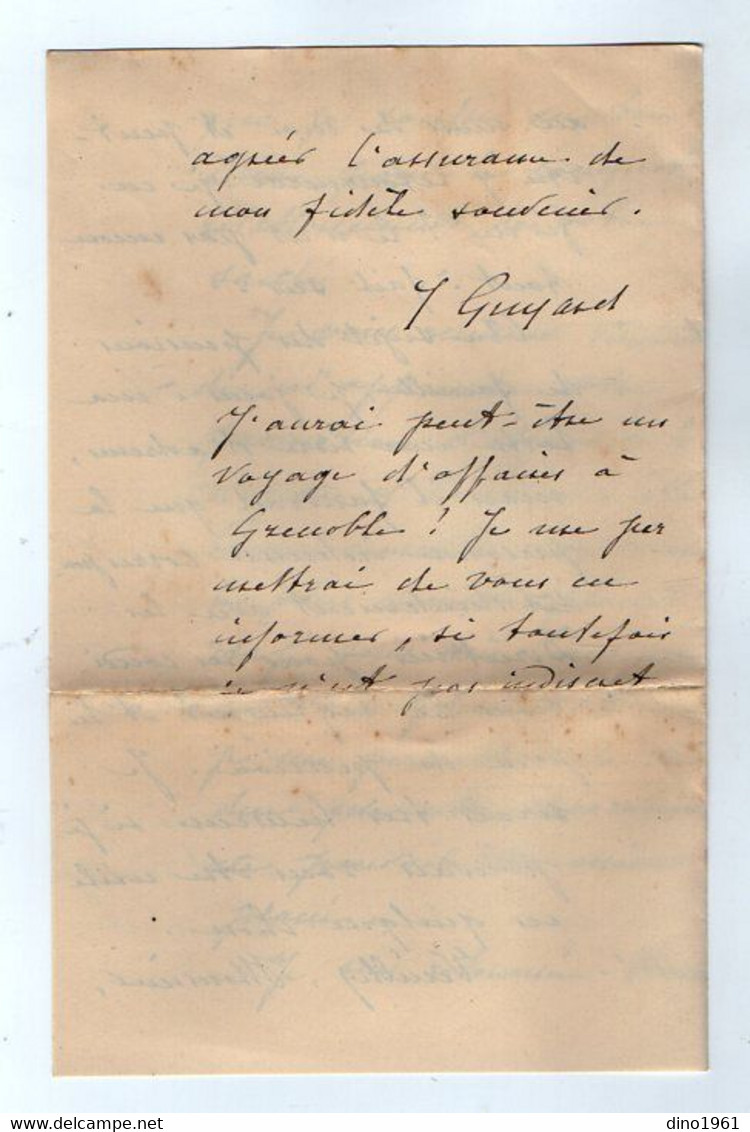 agréer l'assurance de
mon fidèle souvenir.
J Guyard
J'aurai peut-être un
voyage d'affaires à
Grenoble ! Je me per
mettrai de vous en
informer, si toutefois
ce n'est pas indiscret
dino1961